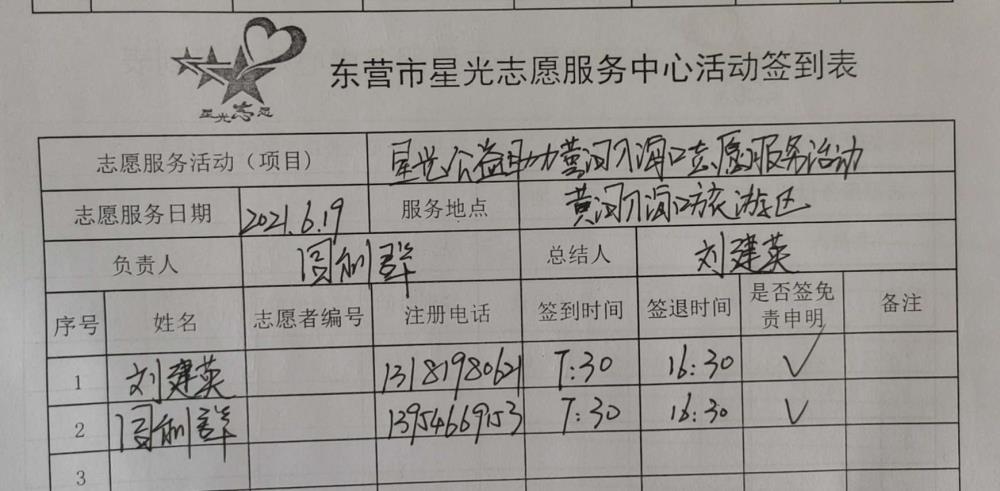 星光志愿
东营市星光志愿服务中心活动签到表
志愿服务活动（项目） 星光公益助力黄河入海口志愿服务活动
志愿服务日期 2021.6.19 服务地点 黄河入海口旅游区
负责人 周利群 总结人 刘建英
序号 姓名 志愿者编号 注册电话 签到时间 签退时间 是否签免责申明 备注
1 刘建英 13181980621 7:30 16:30 √
2 周利群 13954669153 7:30 16:30 √
3